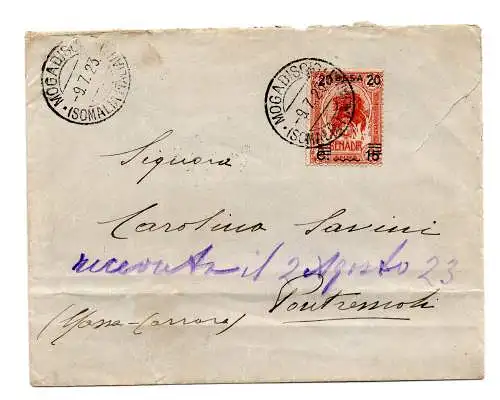 MOGADISCIO
-9.7.23
(SOMALIA ITALIANA)
MOGADISCIO
-9.7.23
(SOMALIA ITALIANA)
20 BESA 20
BENADIR
15
Signora
Carolina Savini
ricevuta il 2 Agosto 23
Pontremoli
(Massa-Carrara)